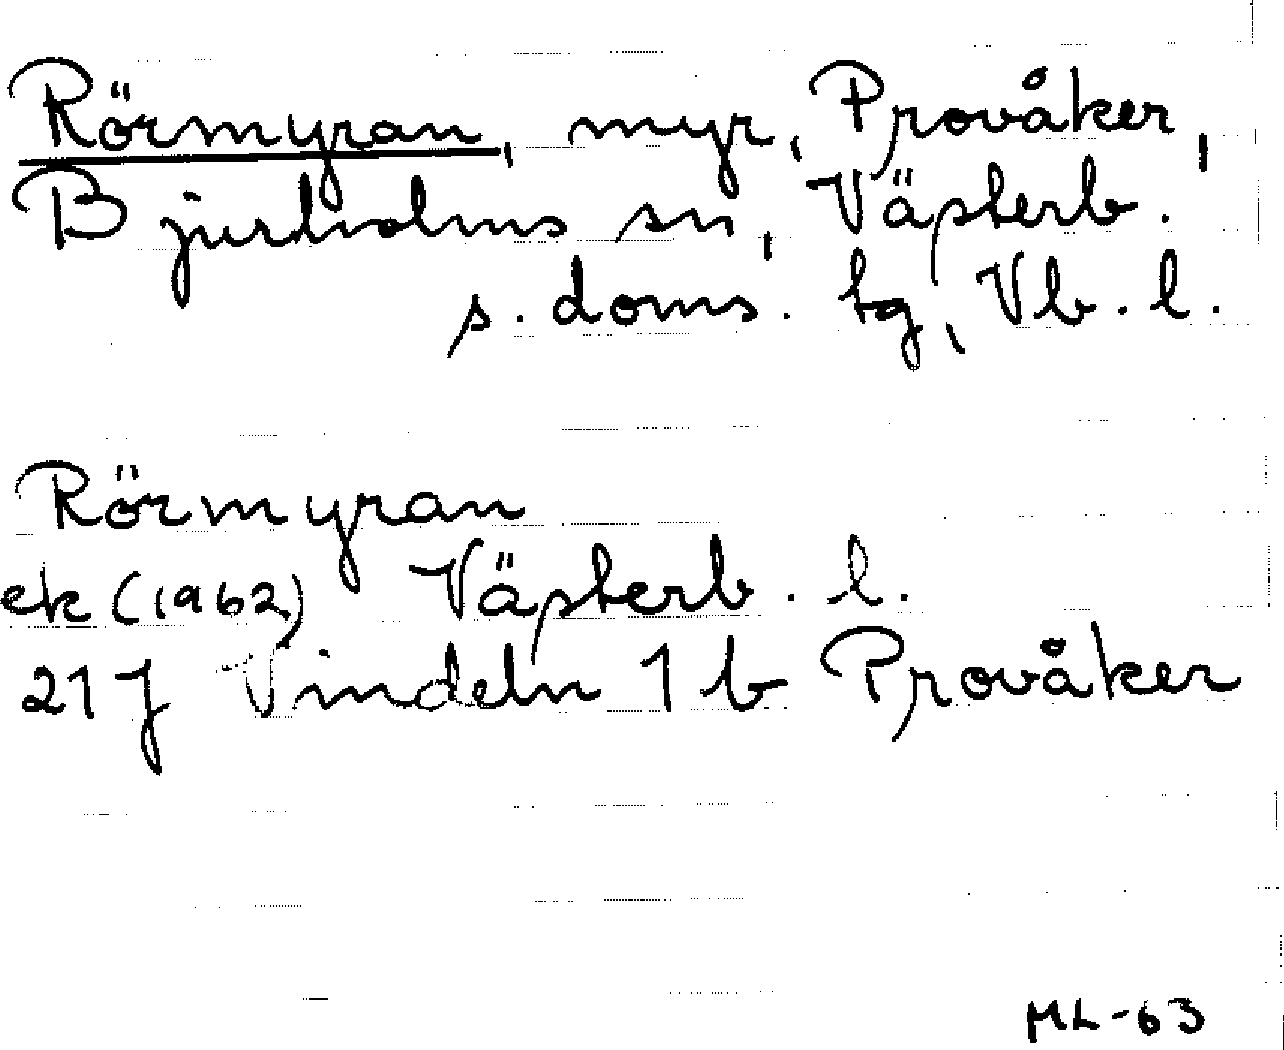 Rörmyran, myr, Provåker,
Bjurholms sn, Västerb.
s. doms. tg, Vb. l.
Rörmyran
ek (1962) Västerb. l.
21 J Vindeln 1 b Provåker
ML-63